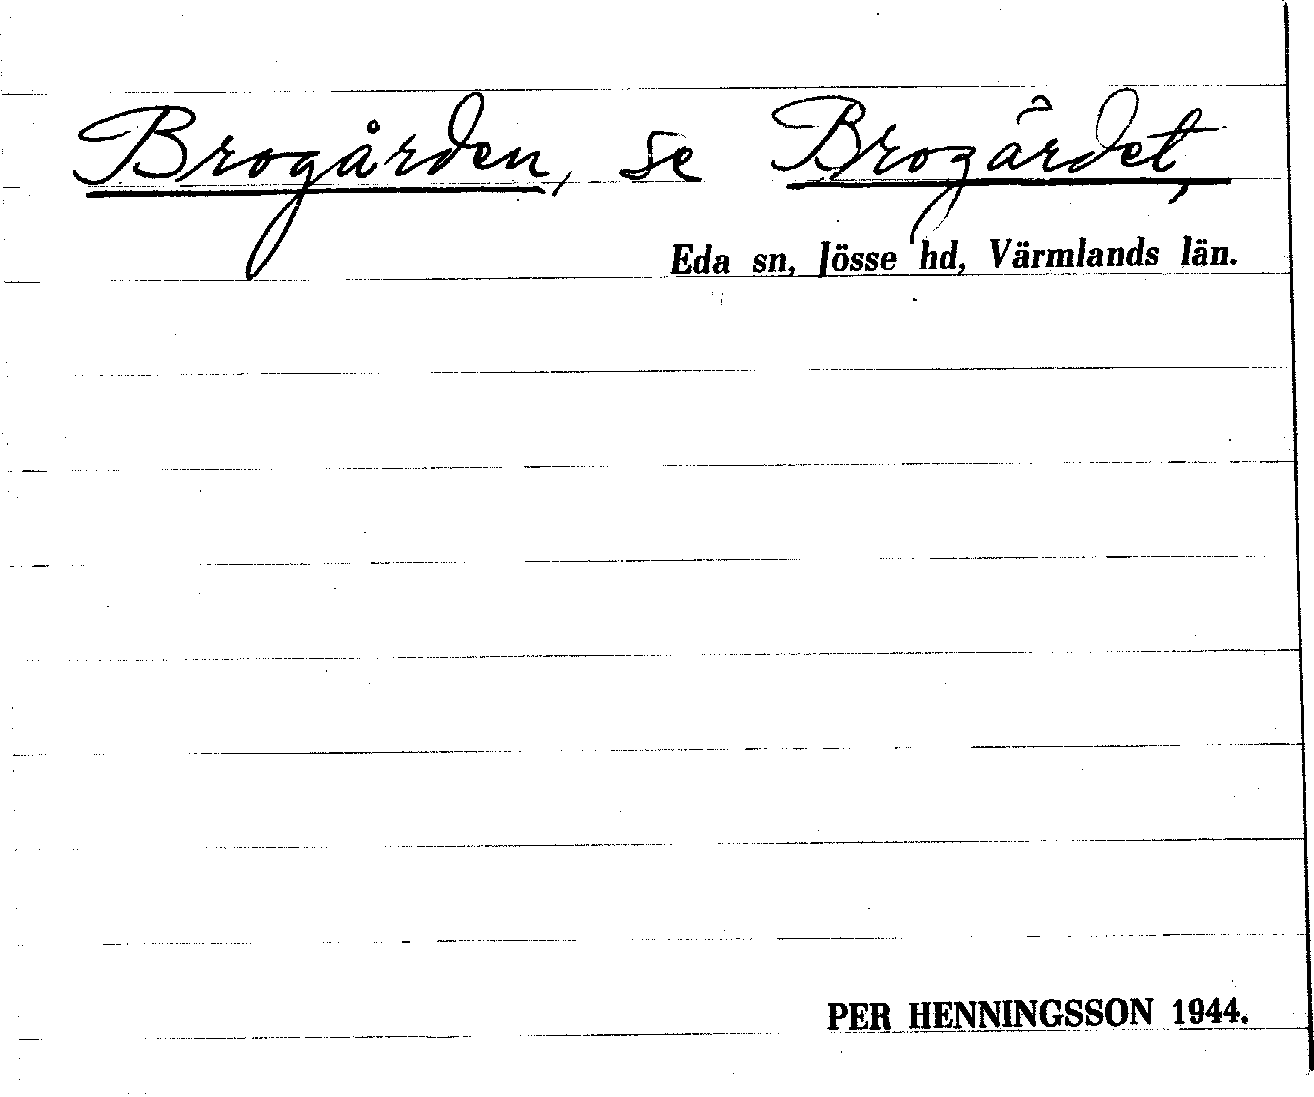 Brogården, se Brogärdet,
Eda sn, Jösse hd, Värmlands län.
PER HENNINGSSON 1944.